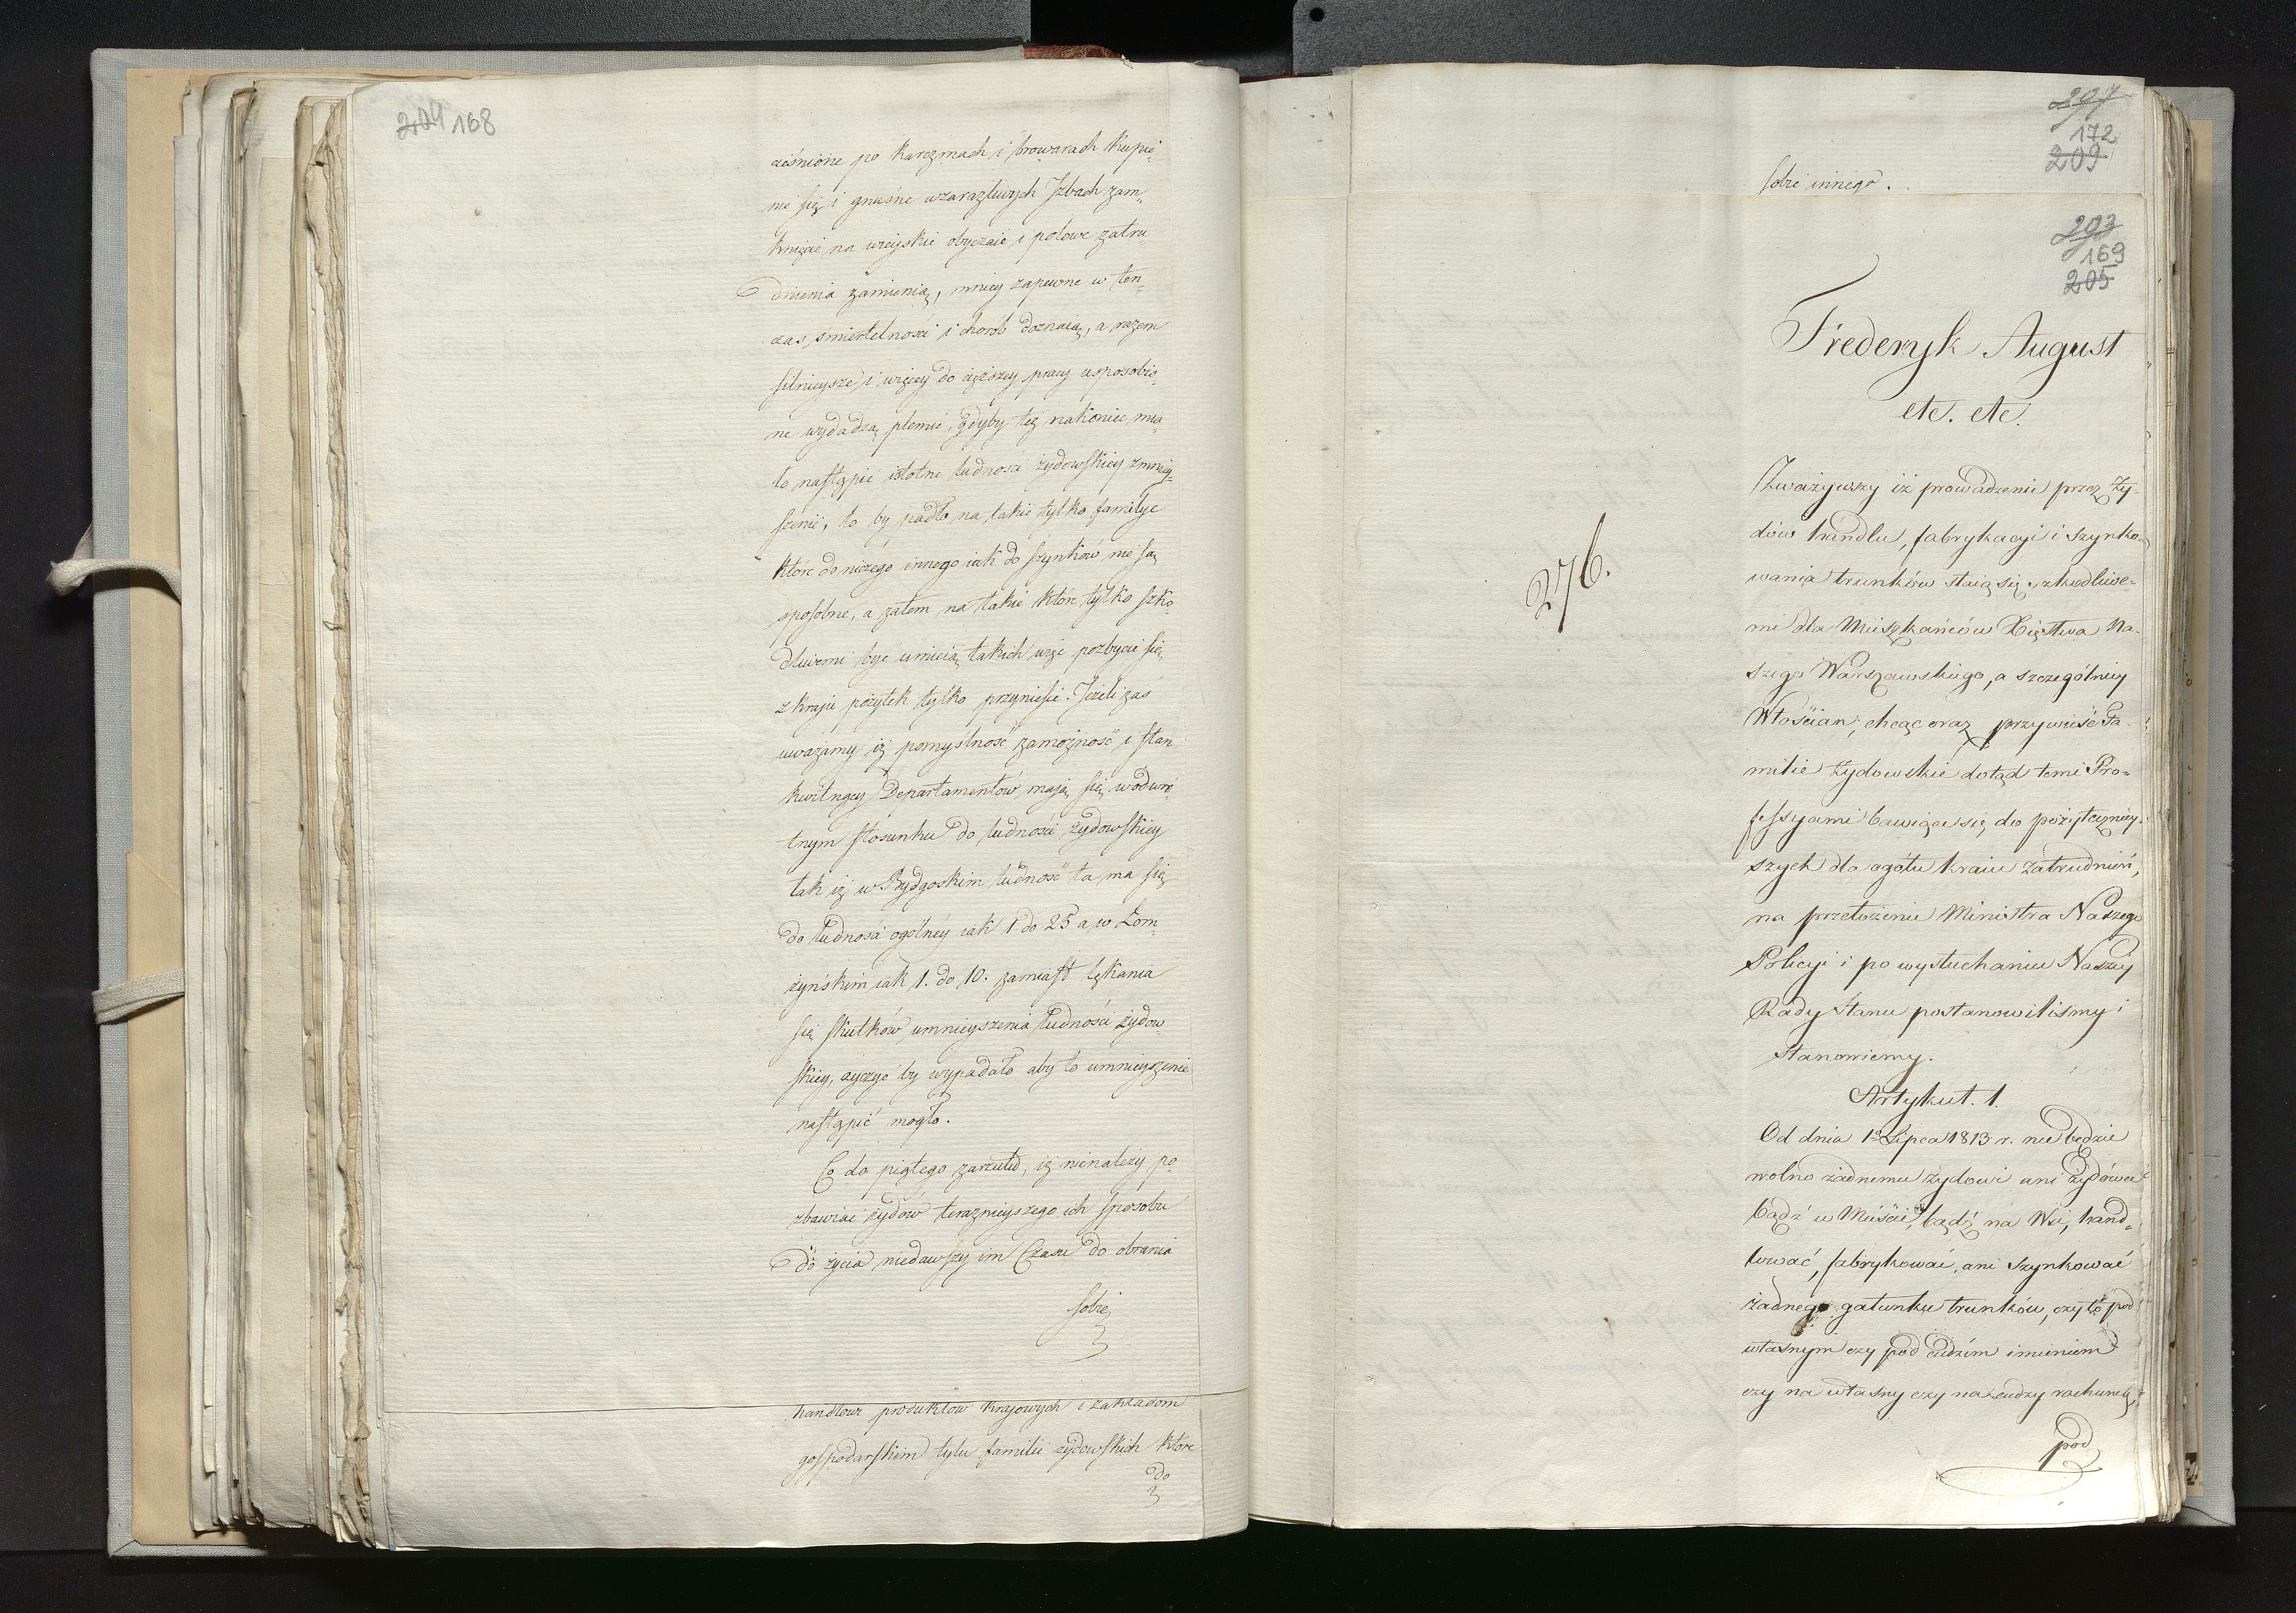 204 168
ciśnione po karczmach i browarach kupie„
nie się i gnuśne wzaraźliwych Jzbach zam„
knięcie na wieyskie obyczaie i polowe zatru„
dnienia zamienią, mniey zapewne w ten„
czas smiertelności i chorób doznaią, a razem
silnieysze i więcey do cięższey pracy usposobio„
ne wydadzą plemie, gdyby też nakoniec mia„
ło nastąpić istotne ludności żydowskiey zmniey„
szenie, to by padło na takie tylko familye
które do niczego innego iak do szynków nie są
sposobne, a zatem na takie które tylko szko„
dliwemi być umieią, takich więc pozbycie się
z kraju pożytek tylko przyniesie. Jeżeli zaś
uważamy iż pomyślność zamożność i stan
kwitnący Departamentów mają się wodwro„
tnym stosunku do ludności żydowskiey
tak iż w Bydgoskim ludność ta ma się
do ludności ogólney iak 1 do 25 a w Łom„
żyńskim iak 1. do 10. zamiast lękania
się skutków umnieyszenia ludności żydow„
skiey, życzyć by wypadało aby to umnieyszenie
nastąpić mogło.
Co do piątego zarzutu, iż nienależy po„
zbawiać żydów teraznieyszego ich sposobu
do życia niedawszy im Czasu do obrania
sobie
handlowi produktów krajowych i zakładom
gospodarskim tylu familii żydowskich które
do
207
172
209
sobie innego.
203
169
205
Frederyk August
etc. etc.
276.
Zważywszy iż prowadzenie przez Ży-
dów handlu, fabrykacyi i szynko-
wania trunków staią się szkodliwe-
mi dla Mieszkańców Xięstwa Na-
szego Warszawskiego, a szczególniey
Włościan; chcąc oraz przywieść Fa-
milie żydowskie dotąd temi Pro-
fessyami bawiące się do pożyteczniey-
szych dla ogółu kraiu zatrudnień,
na przełożenie Ministra Naszego
Policyi i po wysłuchaniu Naszey
Rady Stanu postanowiliśmy i
stanowiemy.
Artykuł. 1.
Od dnia 1o Lipca 1813 r. nie będzie
wolno żadnemu żydowi ani żydówce
bądź w Mieście, bądź na Wsi, hand-
lować, fabrykować, ani szynkować
żadnego gatunku trunków, czy to pod
własnym czy pod cudzim imieniem
czy na własny czy na cudzy rachunek,
pod